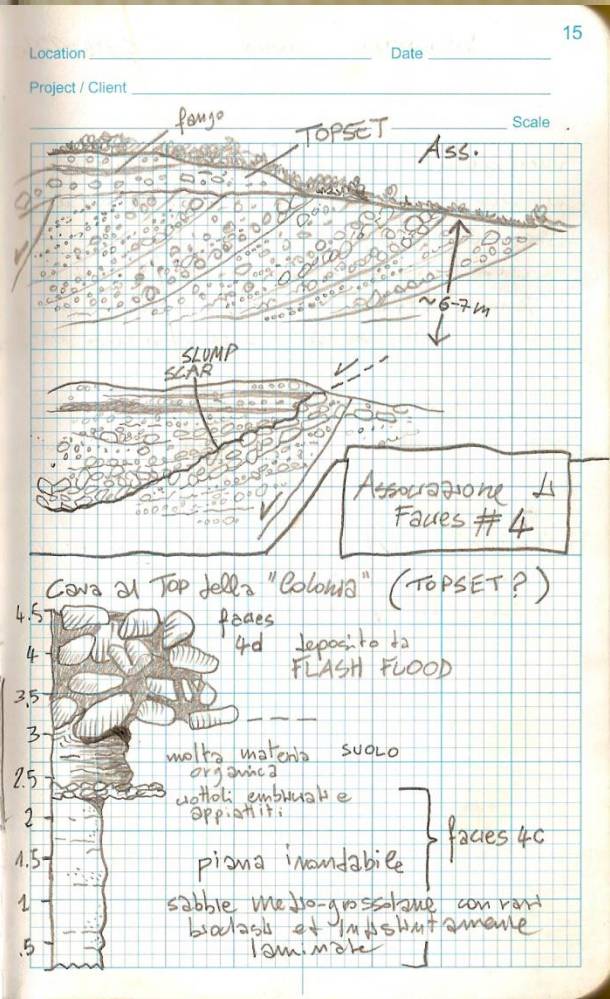 15
Location Date
Project / Client
Scale
fango
TOPSET
Ass.
~6-7m
SLUMP
SCAR
Associazione di
Facies # 4
Cava al Top della "Colonia" (TOPSET?)
4.5
4
3.5
3
2.5
2
1.5
1
.5
facies
4d
deposito da
FLASH FLOOD
molta materia
organica
SUOLO
ciottoli embricati e
appiattiti
facies 4c
piana inondabile
sabbie medio-grossolane con rari
bioclasti et indistintamente
laminate